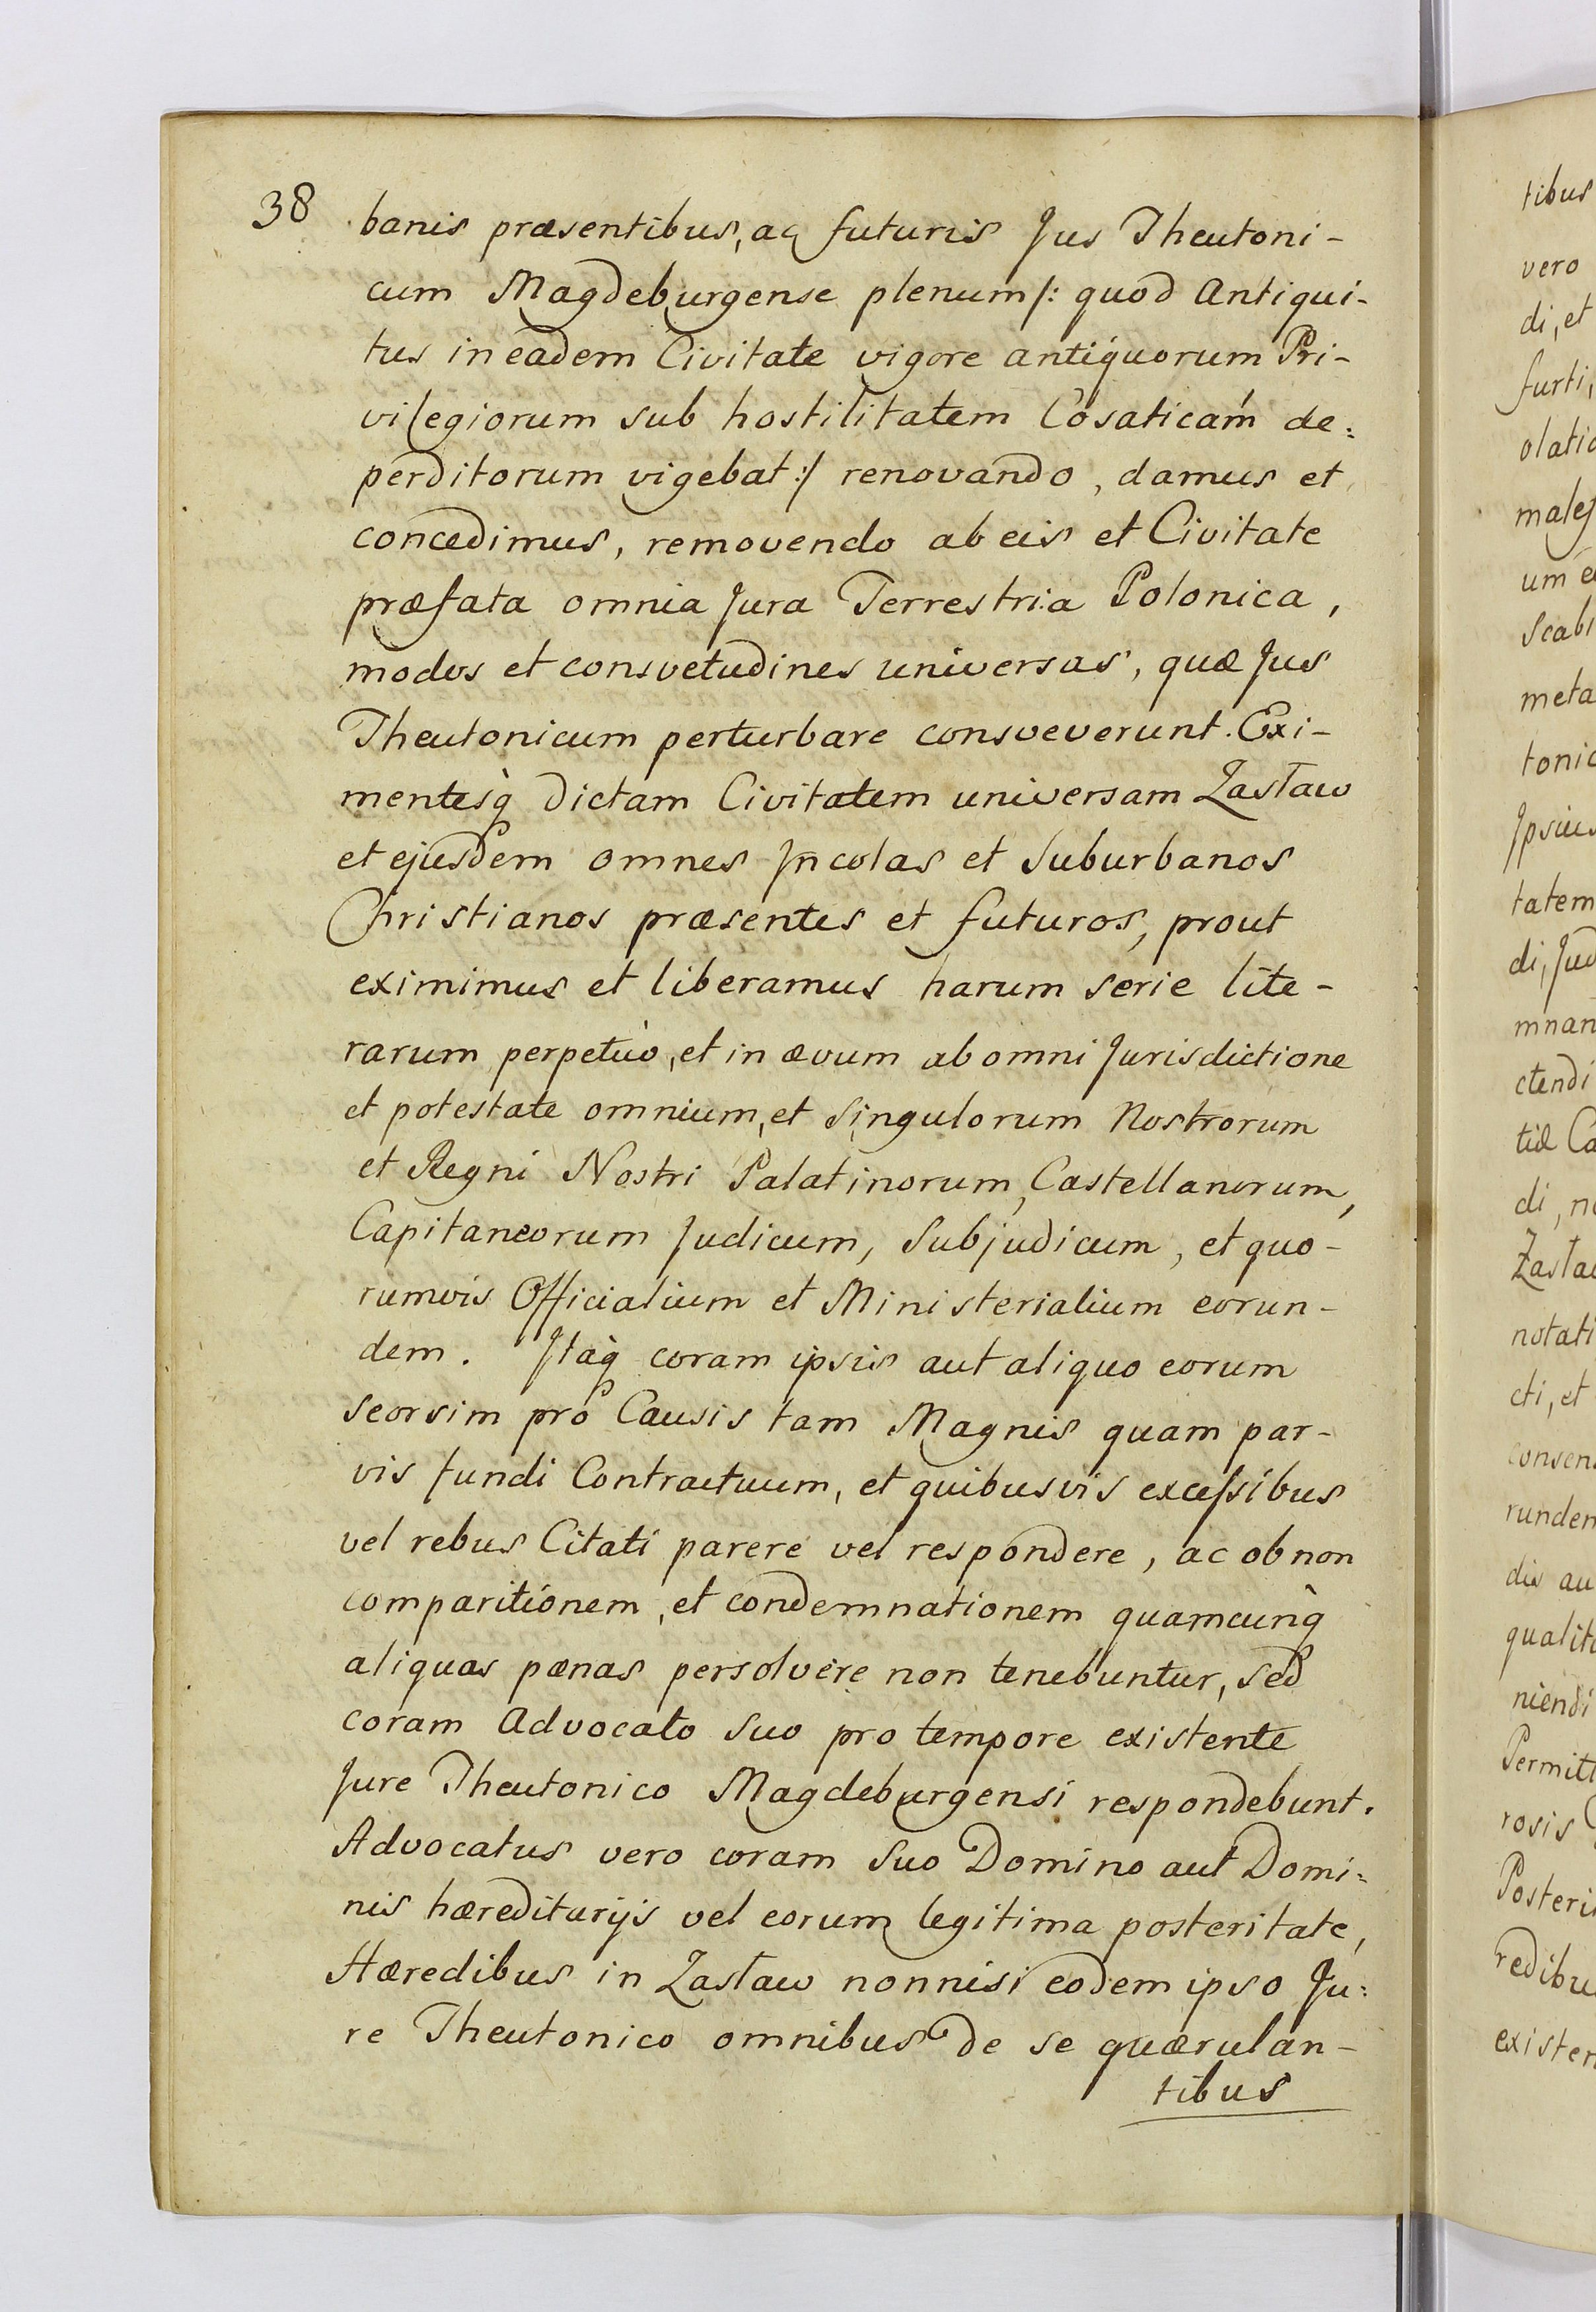 38
banis præsentibus, ac futuris Jus Theutoni-
cum Magdeburgense plenum /: quod Antiqui-
tus in eadem Civitate vigore antiquorum Pri-
vilegiorum sub hostilitatem Cosaticam de:
perditorum vigebat :/ renovando, damus et
concedimus, removendo ab eis et Civitate
præfata omnia Jura Terrestria Polonica,
modos et consvetudines universas, quæ Jus
Theutonicum perturbare consveverunt. Exi-
mentesq̀ dictam Civitatem universam Zasław
et ejusdem omnes Jncolas et Suburbanos
Christianos præsentes et futuros, prout
eximimus et liberamus harum serie lite-
rarum perpetuò, et in ævum ab omni Jurisdictione
et potestate omnium, et Singulorum Nostrorum
et Regni Nostri Palatinorum, Castellanorum,
Capitaneorum Judicum, Subjudicum, et quo-
rumvis Officialium et Ministerialium eorun-
dem. Jtaq̀ coram ipsis aut aliquo eorum
seorsim pro Causis tam Magnis quam par-
vis fundi Contractuum, et quibusvis excessibus
vel rebus Citati parere vel respondere, ac ob non
comparitionem, et condemnationem quamcunq̀
aliquas pænas persolvere non tenebuntur, Sed
coram Advocato Suo pro tempore existente
Jure Theutonico Magdeburgensi respondebunt.
Advocatus vero coram Suo Domino aut Domi:
nis hæreditarijs vel eorum legitima posteritate,
Hæredibus in Zasław nonnisi eodem ipso Ju:
re Theutonico omnibus de se quærulan-
tibus
tibus
vero
di, et
furti,
olatio
malef
um e
Scabi
meta
tonic
Jpsius
tatem
di, Jud
mnan
ctendi
tiæ Ca
di, n
Zasła
notati
cti, et
consen
runden
dis au
qualit
niendi
Permitt
rosis
Posteri
redibu
existen